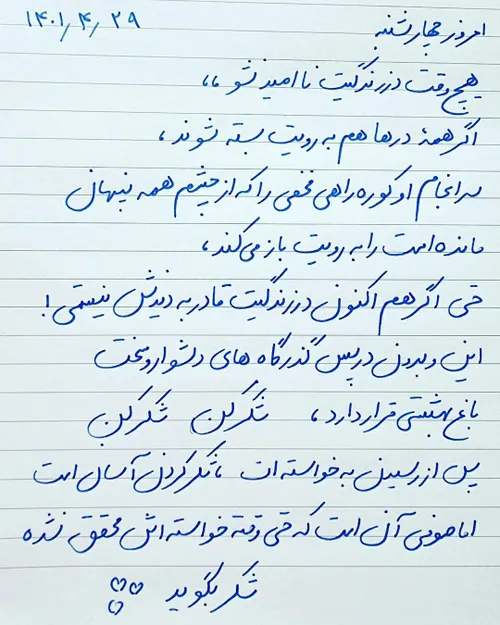 امروز چهارشنبه ۱۴۰۱/۴/۲۹
هیچ وقت در زندگیت ناامید نشو ،،
اگر همهٔ درها هم به رویت بسته شوند ،
سرانجام او کوره راهی مخفی را که از چشم همه پنهان
مانده است را به رویت باز می‌کند ،
حتی اگر هم اکنون در زندگیت قادر به دیدنش نیستی !
این و بدون در پس گذرگاه های دشوار و سخت
باغ بهشتی قرار دارد ، شکر کن شکر کن
پس از رسیدن به خواسته ات ، شکر کردن آسان است
اما صوفی آن است که حتی وقتی خواسته اش محقق نشده
شکر بگوید